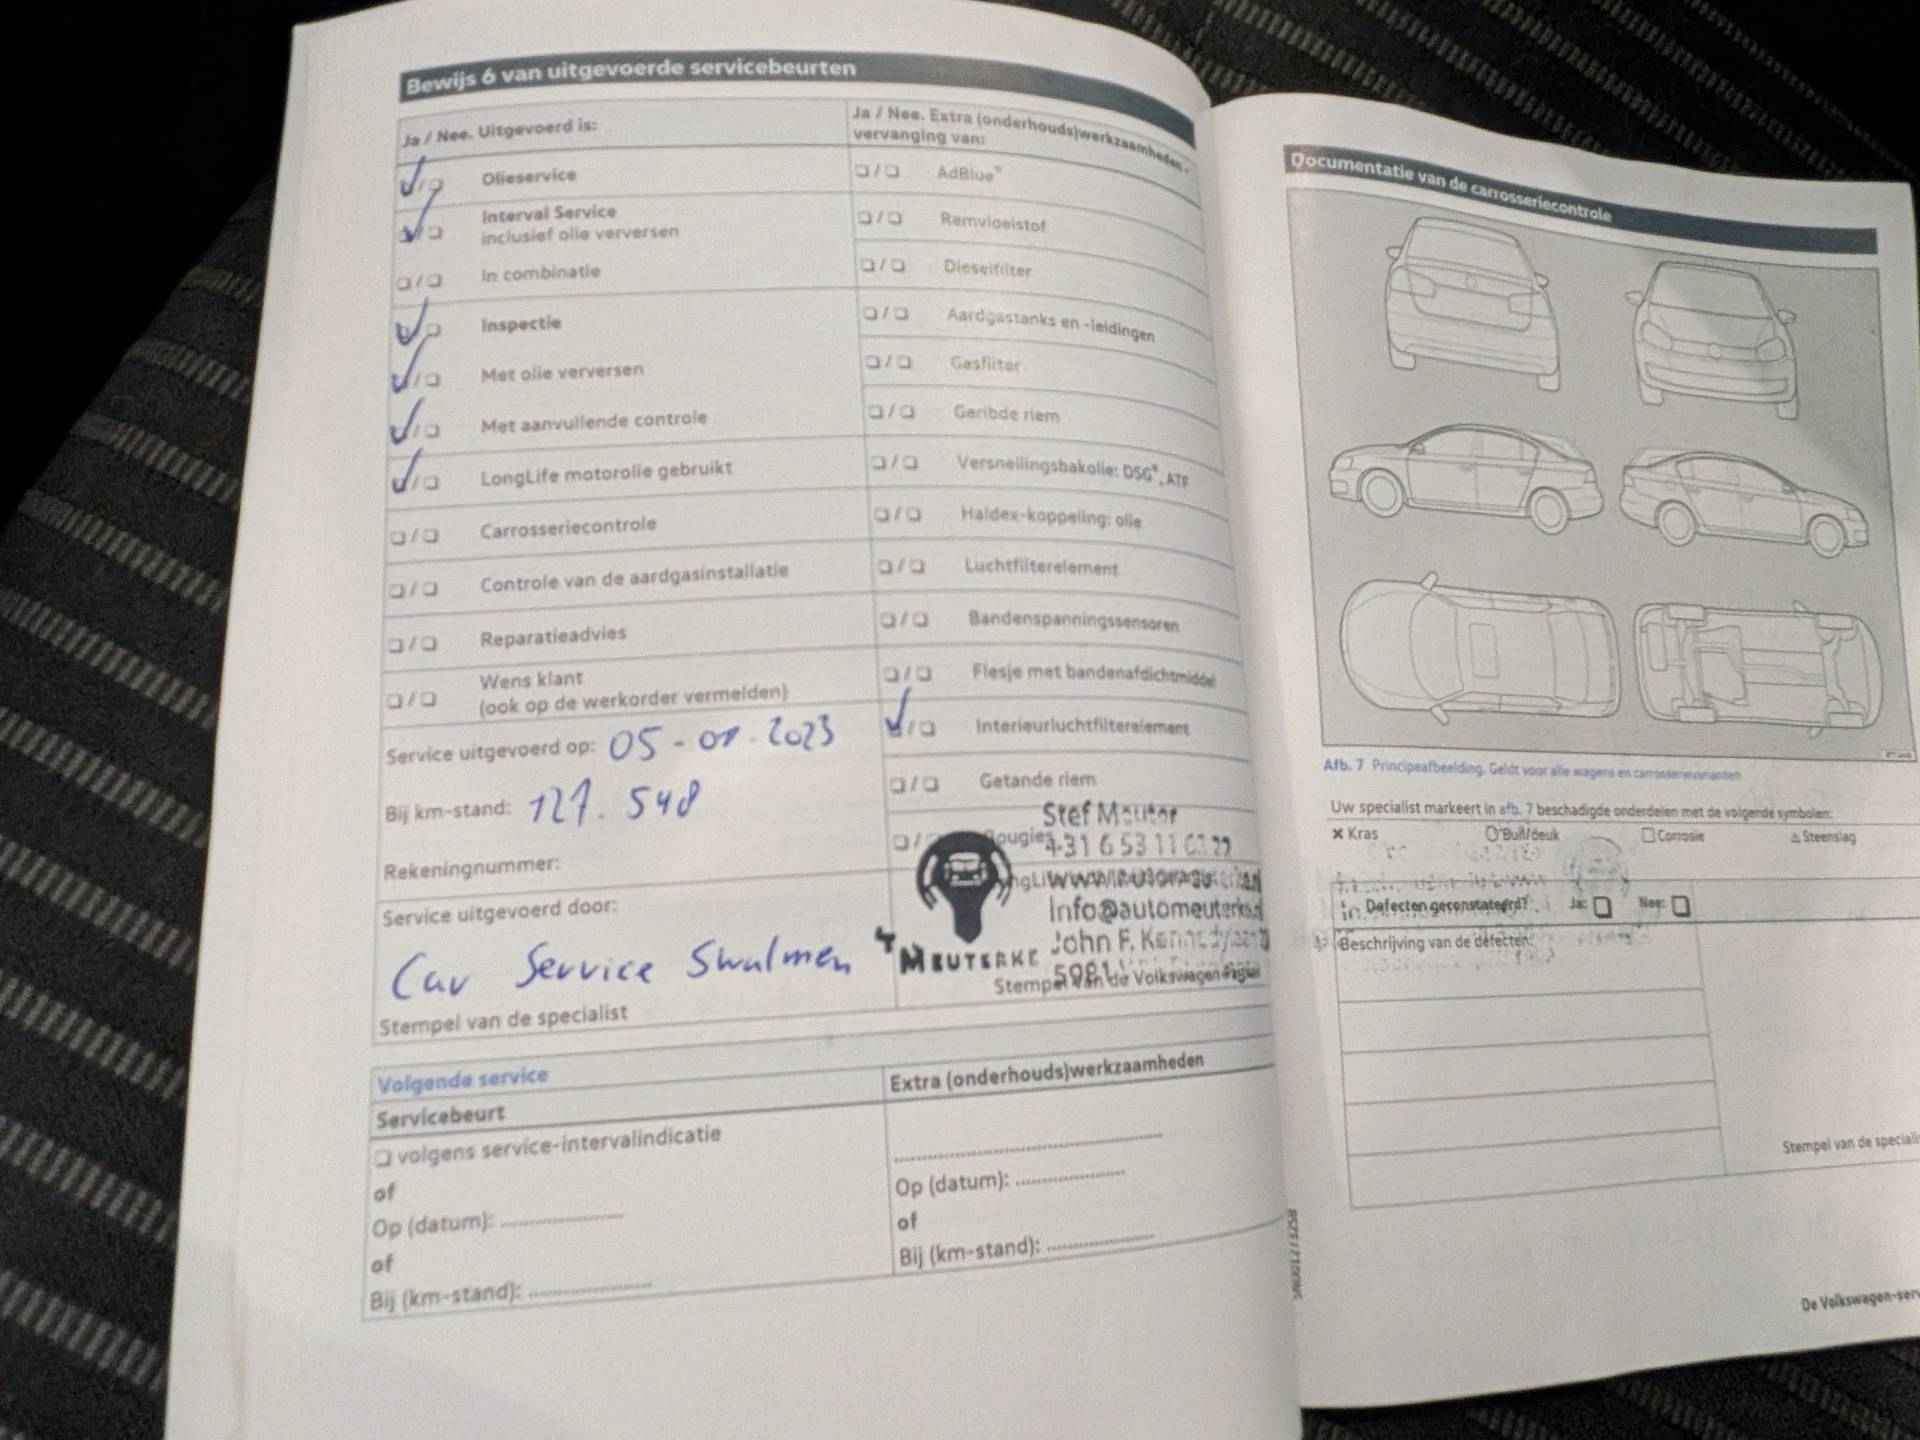 Bewijs 6 van uitgevoerde servicebeurten
Ja / Nee. Uitgevoerd is:
Olieservice
Interval Service
inclusief olie verversen
In combinatie
Inspectie
Met olie verversen
Met aanvullende controle
LongLife motorolie gebruikt
Carrosseriecontrole
Controle van de aardgasinstallatie
Reparatieadvies
Wens klant
(ook op de werkorder vermelden)
Service uitgevoerd op: 05-01-2023
Bij km-stand: 127.548
Rekeningnummer:
Service uitgevoerd door:
Car Service Swalmen
Stempel van de specialist
Ja / Nee. Extra (onderhouds)werkzaamheden -
vervanging van:
AdBlue®
Remvloeistof
Dieselfilter
Aardgastanks en -leidingen
Gasfilter
Geribde riem
Versnellingsbakolie: DSG®, ATF
Haldex-koppeling: olie
Luchtfilterelement
Bandenspanningssensoren
Flesje met bandenafdichtmiddel
Interieurluchtfilterelement
Getande riem
Stef
+31 6 53 11
MEUTERKE
John F.
Stempel van de Volkswagen
Volgende service
Servicebeurt
volgens service-intervalindicatie
of
Op (datum):
of
Bij (km-stand):
Extra (onderhouds)werkzaamheden
Op (datum):
of
Bij (km-stand):
Documentatie van de carrosseriecontrole
Afb. 7 Principeafbeelding. Geldt voor alle wagens en carrosserievarianten
Uw specialist markeert in afb. 7 beschadigde onderdelen met de volgende symbolen:
Kras
Buil/deuk
Corrosie
Steenslag
Defecten geconstateerd? Ja: Nee:
Beschrijving van de defecten:
Stempel van de speciali
De Volkswagen-serv